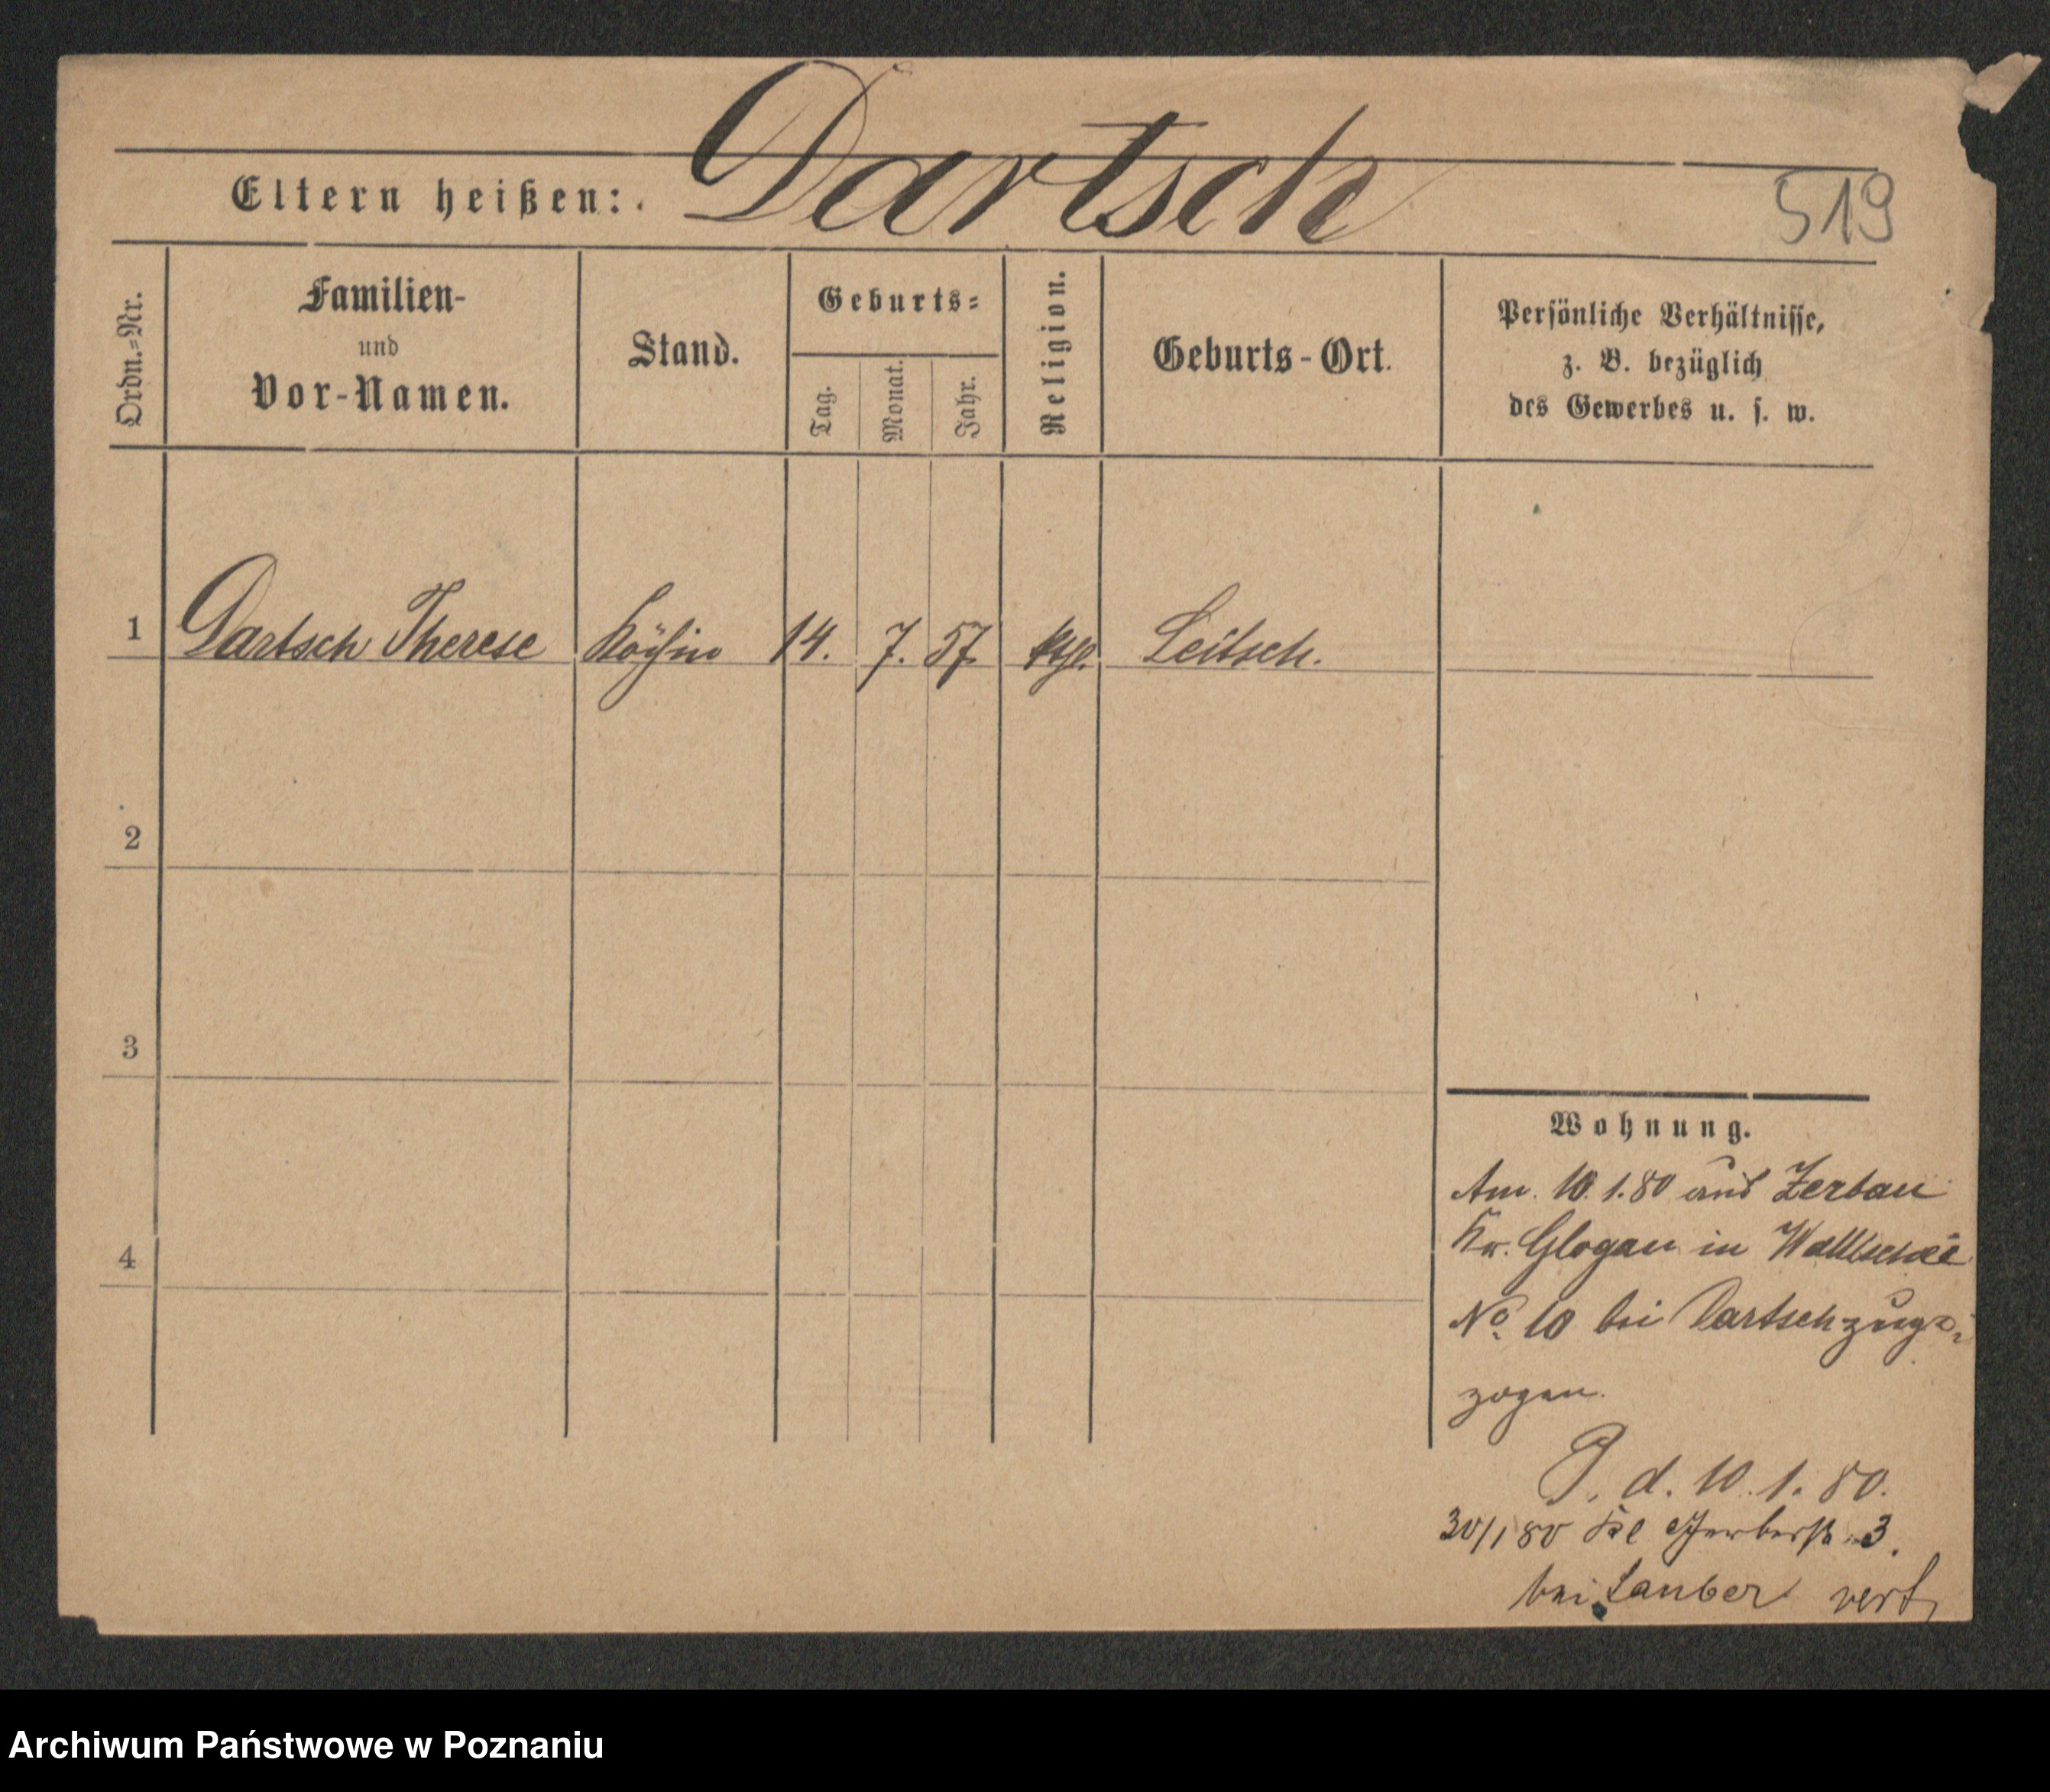 Eltern heißen: Dartsch
519
Ordn.-Nr.
Familien-
und
Vor-Namen.
Stand.
Geburts-
Tag.
Monat.
Jahr.
Religion.
Geburts-Ort.
Persönliche Verhältnisse,
z. B. bezüglich
des Gewerbes u. s. w.
1 Dartsch Therese Köchin 14. 7. 57 kth. Leitsch.
2
3
4
Wohnung.
Am 10. 1. 80 aus Zerbau
Kr. Glogau in Wallischei
No. 10 bei Dartsch zuge-
zogen.
P. d. 10. 1. 80.
30/1 80 Kl Gerberstr 3.
bei Lauber
Archiwum Państwowe w Poznaniu